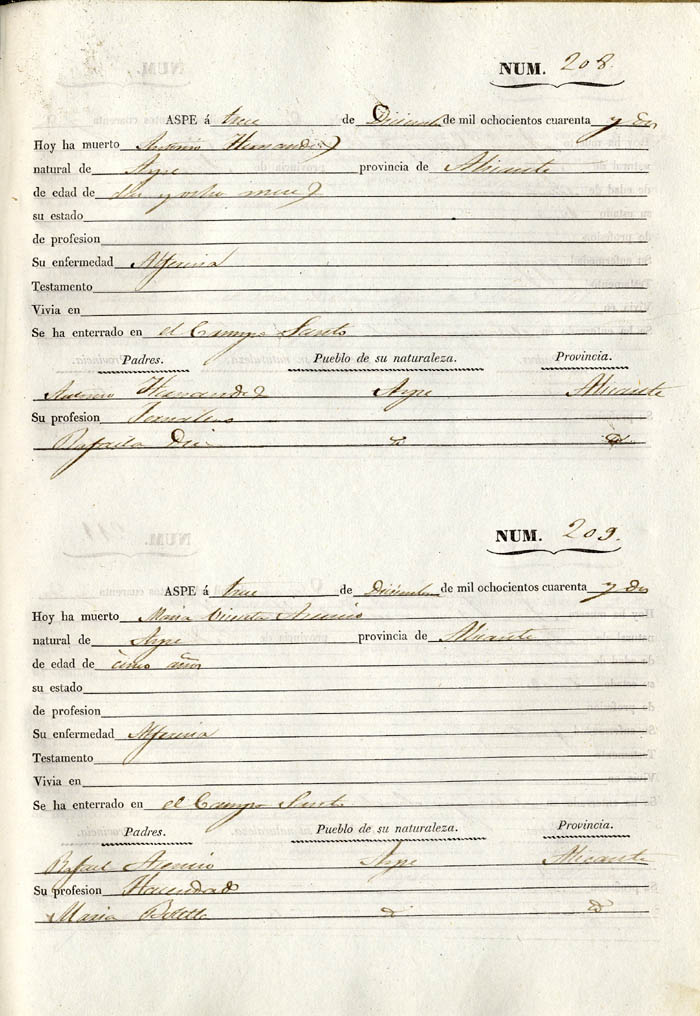 NUM. 208.
ASPE á trece de Diciembre de mil ochocientos cuarenta y dos
Hoy ha muerto Antonio Hernandez
natural de Aspe provincia de Alicante
de edad de diez y ocho meses
su estado
de profesion
Su enfermedad Alferecia
Testamento
Vivia en
Se ha enterrado en el Campo Santo
Padres. Pueblo de su naturaleza. Provincia.
Antonio Hernandez Aspe Alicante
Su profesion Jornalero
Rafaela
NUM. 209.
ASPE á trece de Diciembre de mil ochocientos cuarenta y dos
Hoy ha muerto Maria Vicenta Asencio
natural de Aspe provincia de Alicante
de edad de cinco años
su estado
de profesion
Su enfermedad Alferecia
Testamento
Vivia en
Se ha enterrado en el Campo Santo
Padres. Pueblo de su naturaleza. Provincia.
Rafael Asencio Aspe Alicante
Su profesion Hacendado
Maria Botella